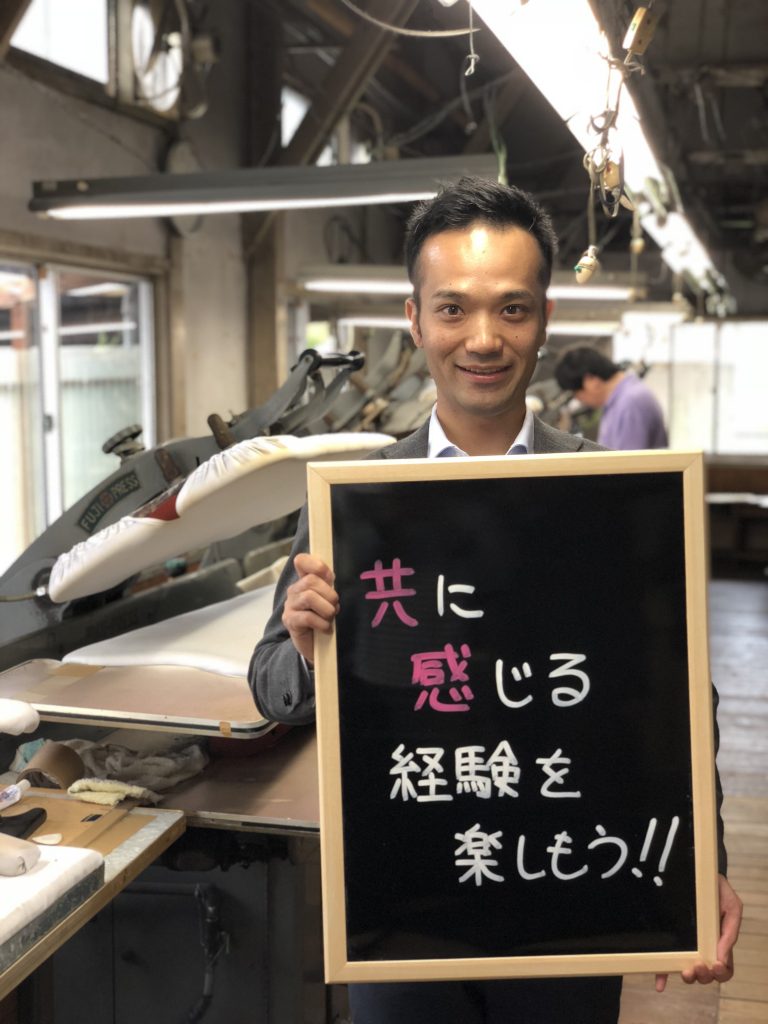 FUJI PRESS
共に
感じる
経験を
楽しもう!!